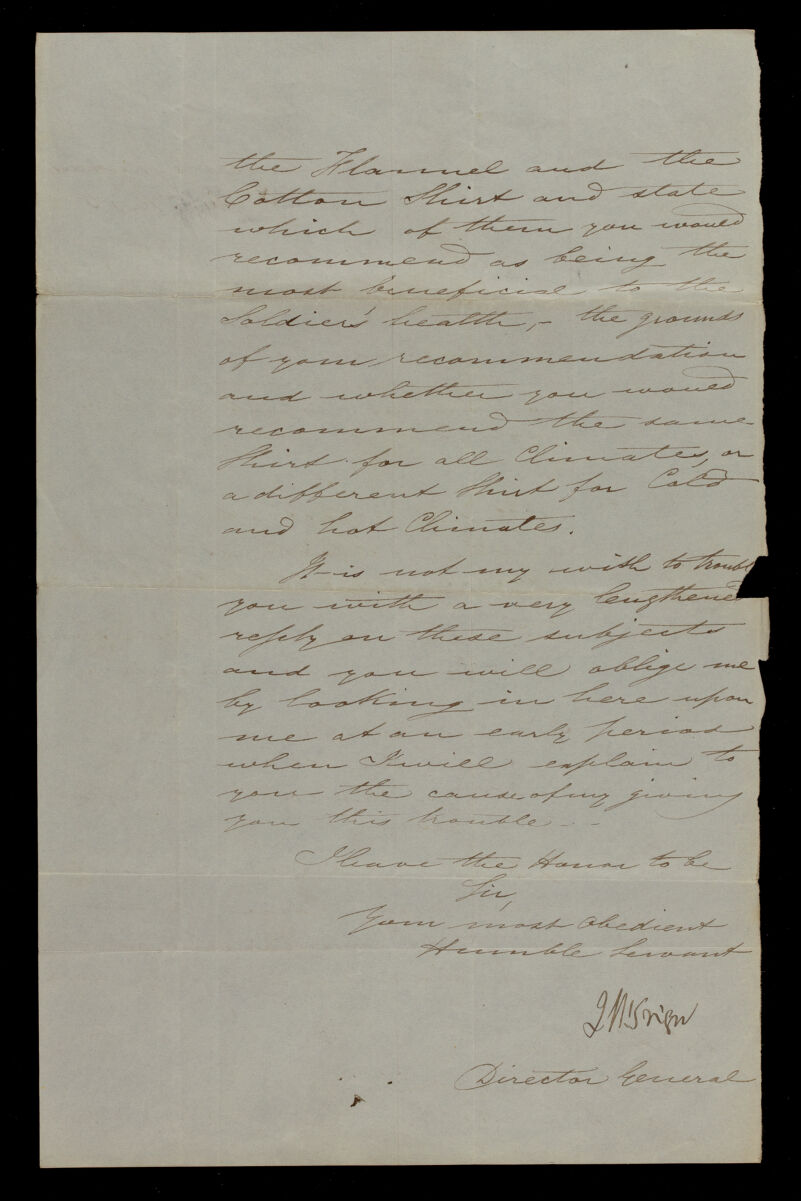 the Flannel and the
Cotton Shirt and state
which of them you would
recommend as being the
most beneficial to the
Soldier's health, - the grounds
of your recommendation
and whether you would
recommend the same
Shirt for all Climates, or
a different Shirt for Cold
and hot Climates.
It is not my wish to trouble
you with a very lengthened
reply on these subjects
and you will oblige me
by looking in here upon
me at an early period
when I will explain to
you the cause of my giving
you this trouble --
I have the Honor to be
Sir,
Your most Obedient
Humble Servant
Director General